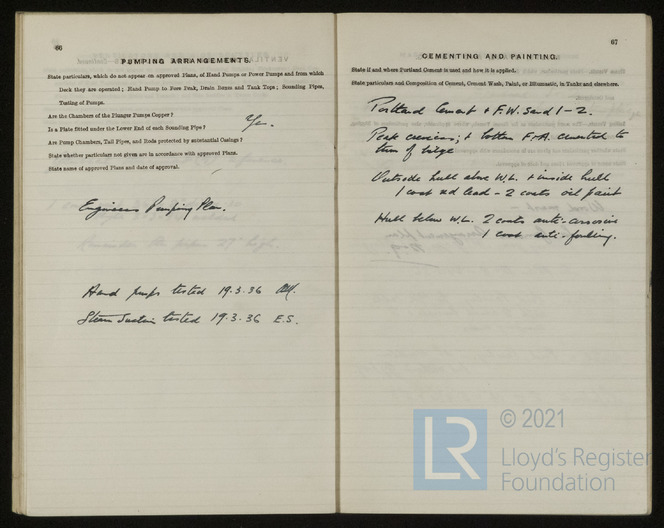 66
PUMPING ARRANGEMENTS.
State particulars, which do not appear on approved Plans, of Hand Pumps or Power Pumps and from which
Deck they are operated; Hand Pump to Fore Peak, Drain Boxes and Tank Tops; Sounding Pipes,
Testing of Pumps.
Are the Chambers of the Plunger Pumps Copper?
Is a Plate fitted under the Lower End of each Sounding Pipe?
Are Pump Chambers, Tail Pipes, and Rods protected by substantial Casings?
State whether particulars not given are in accordance with approved Plans.
State name of approved Plans and date of approval.
Engineers Pumping Plan.
Hand pumps tested 19.3.36
Steam Suction tested 19.3.36 E.S.
67
CEMENTING AND PAINTING.
State if and where Portland Cement is used and how it is applied.
State particulars and Composition of Cement, Cement Wash, Paint, or Bitumastic, in Tanks and elsewhere.
Portland Cement & F.W. Sand 1-2.
Peak crevices; & bottom F&A. cemented to
turn of bilge
Outside hull above W.L. & inside hull
1 coat red lead - 2 coats oil paint
Hull below W.L. 2 coats anti-corrosive
1 coat anti-fouling.
LR
© 2021
Lloyd's Register
Foundation